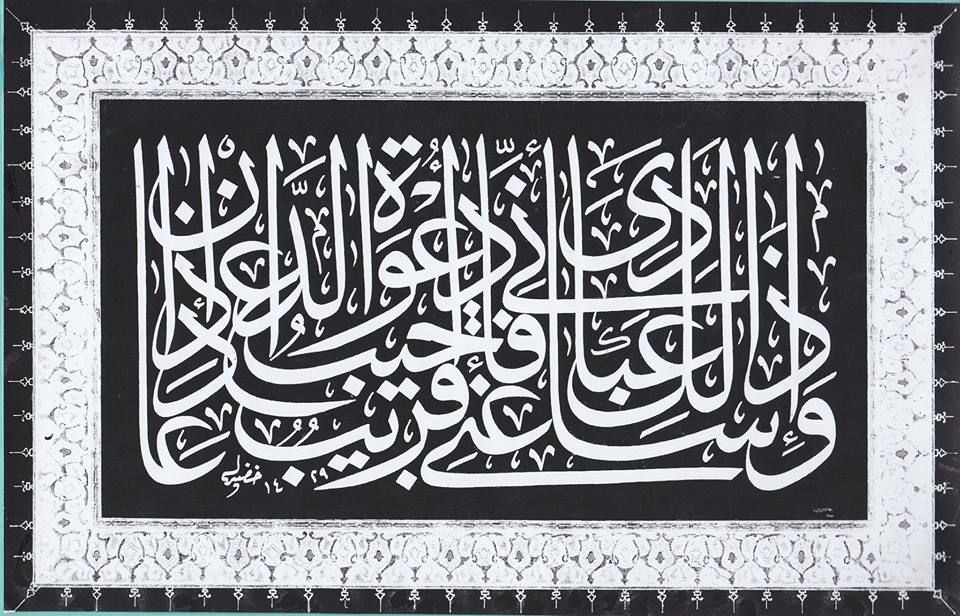 وَإِذَا سَأَلَكَ عِبَادِي عَنِّي فَإِنِّي قَرِيبٌ أُجِيبُ دَعْوَةَ الدَّاعِ إِذَا دَعَانِ
١٤٢٩